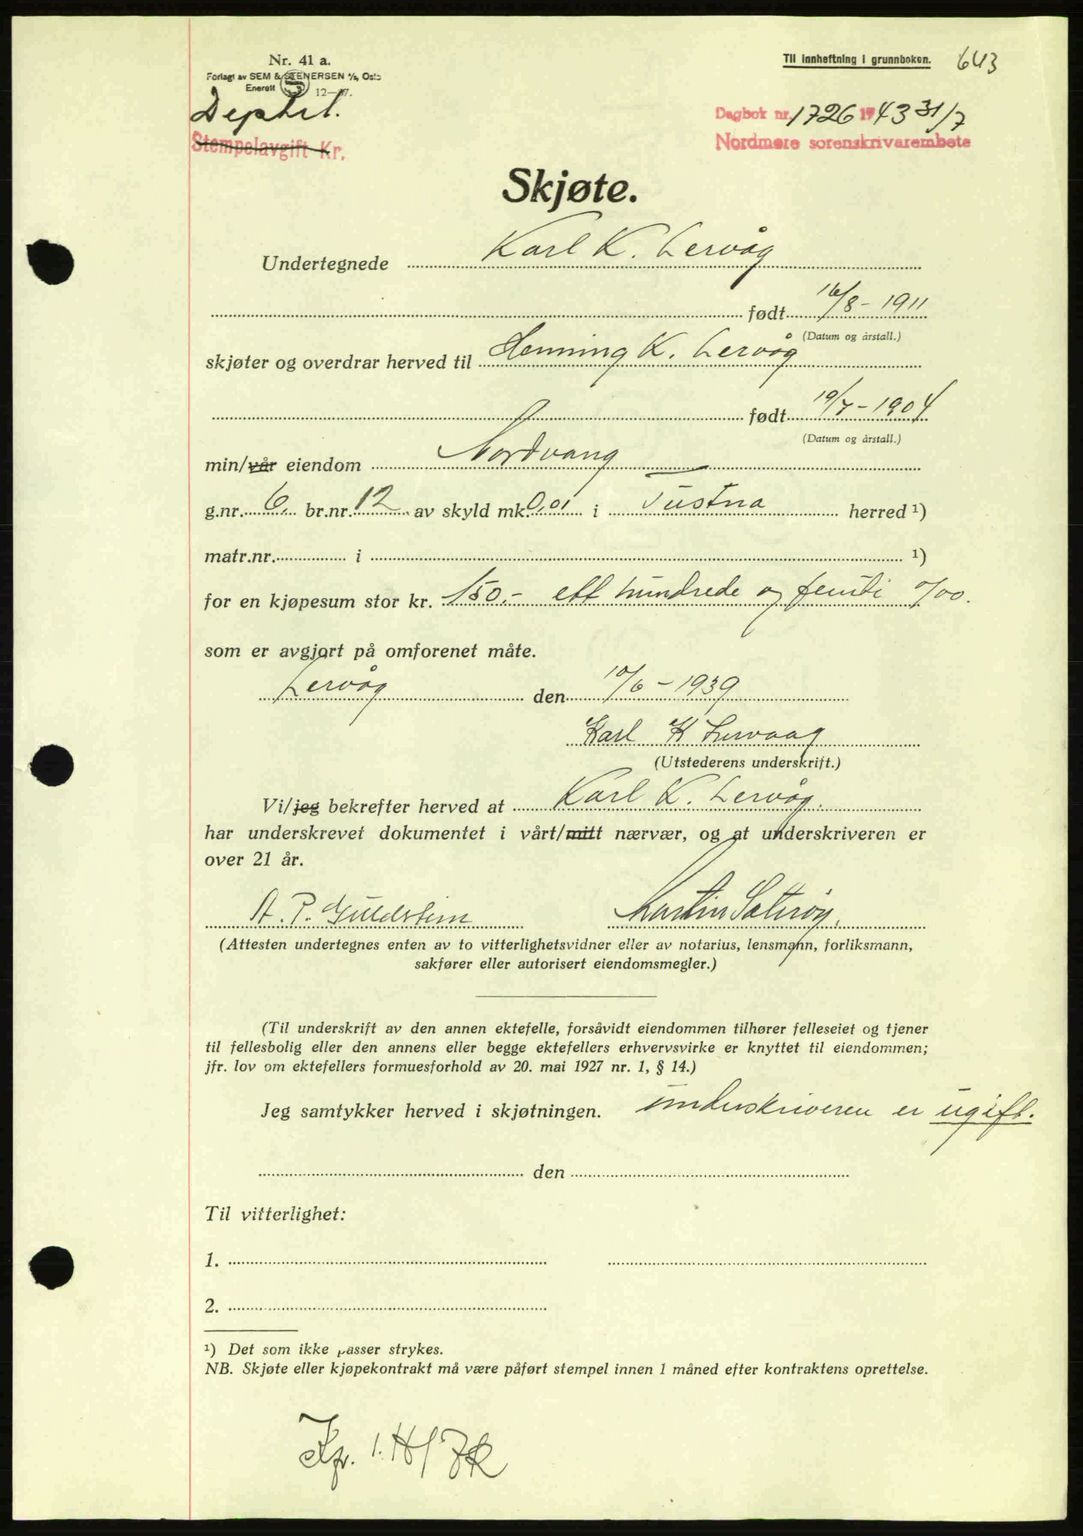 Nr. 41 a.
Forlagt av SEM & STENERSEN A/S, Oslo
Enerett 12—37.
Stempelavgift Kr.
Til innheftning i grunnboken. 643
Dagbok nr. 1726 1943 31/7
Nordmøre sorenskrivarembete
Skjøte.
Undertegnede Karl K. Lervåg
født 16/8-1911
(Datum og årstall.)
skjøter og overdrar herved til Henning K. Lervåg
født 19/7-1904
(Datum og årstall.)
min/vår eiendom Nordvang
g.nr. 6, br.nr. 12 av skyld mk. 0,01 i Tustna herred ¹)
matr.nr. i ¹)
for en kjøpesum stor kr. 150.- ett hundrede og femti 0/00.
som er avgjort på omforenet måte.
Lervåg den 10/6-1939
Karl K Lervaag
(Utstederens underskrift.)
Vi/jeg bekrefter herved at Karl K. Lervåg.
har underskrevet dokumentet i vårt/mitt nærvær, og at underskriveren er
over 21 år.
A. P. Guldstein Martin
(Attesten undertegnes enten av to vitterlighetsvidner eller av notarius, lensmann, forliksmann,
sakfører eller autorisert eiendomsmegler.)
(Til underskrift av den annen ektefelle, forsåvidt eiendommen tilhører felleseiet og tjener
til fellesbolig eller den annens eller begge ektefellers erhvervsvirke er knyttet til eiendommen;
jfr. lov om ektefellers formuesforhold av 20. mai 1927 nr. 1, § 14.)
Jeg samtykker herved i skjøtningen. underskriveren er ugift.
den
Til vitterlighet:
1.
2.
¹) Det som ikke passer strykes.
NB. Skjøte eller kjøpekontrakt må være påført stempel innen 1 måned efter kontraktens oprettelse.